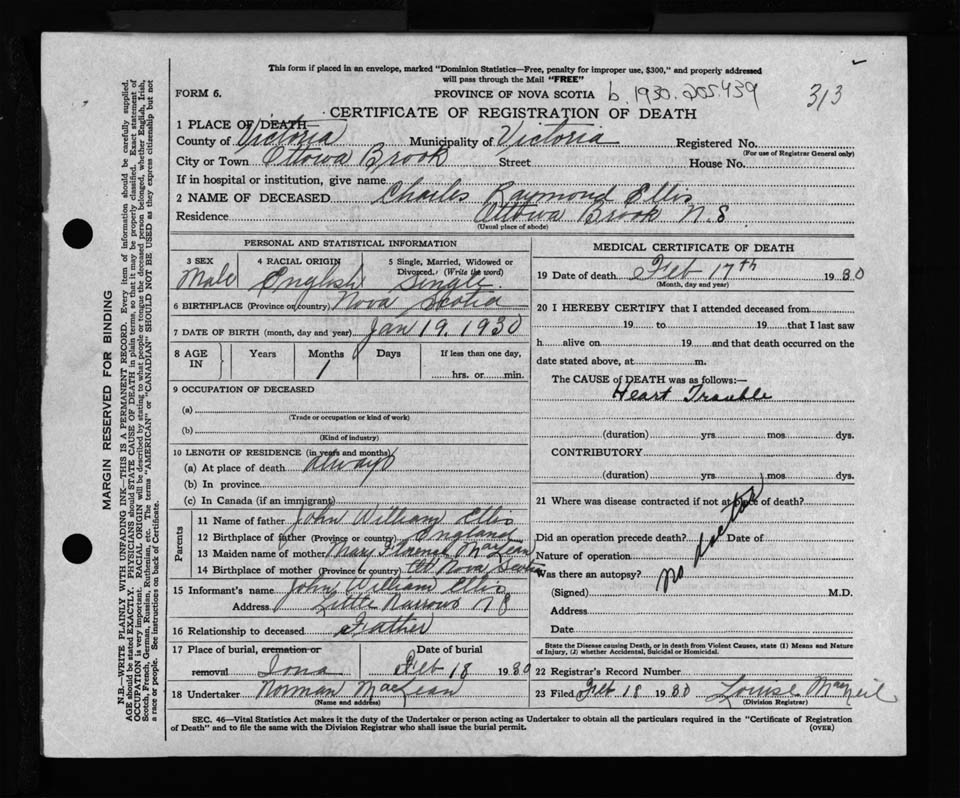 This form if placed in an envelope, marked "Dominion Statistics—Free, penalty for improper use, $300," and properly addressed
will pass through the Mail "FREE"
FORM 6. PROVINCE OF NOVA SCOTIA b. 1930. 205439 313
CERTIFICATE OF REGISTRATION OF DEATH
1 PLACE OF DEATH
County of Victoria Municipality of Victoria Registered No.
(For use of Registrar General only)
City or Town Ottowa Brook Street House No.
If in hospital or institution, give name
2 NAME OF DECEASED Charles Raymond Ellis
Residence Ottowa Brook N.S
(Usual place of abode)
PERSONAL AND STATISTICAL INFORMATION
3 SEX 4 RACIAL ORIGIN 5 Single, Married, Widowed or
Divorced. (Write the word)
Male English Single
6 BIRTHPLACE (Province or country) Nova Scotia
7 DATE OF BIRTH (month, day and year) Jan 19. 1930
8 AGE IN Years Months Days If less than one day,
1 hrs. or min.
9 OCCUPATION OF DECEASED
(a)
(Trade or occupation or kind of work)
(b)
(Kind of industry)
10 LENGTH OF RESIDENCE (in years and months)
(a) At place of death always
(b) In province
(c) In Canada (if an immigrant)
Parents
11 Name of father John William Ellis
12 Birthplace of father (Province or country) England
13 Maiden name of mother Mary Florence MacLean
14 Birthplace of mother (Province or country) Nova Scotia
15 Informant's name John William Ellis
Address Little Narrows N S
16 Relationship to deceased Father
17 Place of burial, cremation or Date of burial
removal Iona Feb 18 1930
18 Undertaker Norman MacLean
(Name and address)
MEDICAL CERTIFICATE OF DEATH
19 Date of death Feb 17th 1930
(Month, day and year)
20 I HEREBY CERTIFY that I attended deceased from
19 to 19 that I last saw
h alive on 19 and that death occurred on the
date stated above, at m.
The CAUSE of DEATH was as follows:—
Heart Trouble
(duration) yrs. mos. dys.
CONTRIBUTORY
(duration) yrs. mos. dys.
21 Where was disease contracted if not at place of death?
Did an operation precede death? Date of
Nature of operation
Was there an autopsy?
no doctor
(Signed) M.D.
Address
Date
State the Disease causing Death, or in death from Violent Causes, state (1) Means and Nature
of Injury, (2) whether Accidental, Suicidal or Homicidal.
22 Registrar's Record Number
23 Filed Feb 18 1930 Louise MacNeil
(Division Registrar)
SEC. 46—Vital Statistics Act makes it the duty of the Undertaker or person acting as Undertaker to obtain all the particulars required in the "Certificate of Registration
of Death" and to file the same with the Division Registrar who shall issue the burial permit. (OVER)
MARGIN RESERVED FOR BINDING
N.B.—WRITE PLAINLY WITH UNFADING INK—THIS IS A PERMANENT RECORD. Every item of information should be carefully supplied.
AGE should be stated EXACTLY. PHYSICIANS should STATE CAUSE OF DEATH in plain terms, so that it may be properly classified. Exact statement of
OCCUPATION is very important. RACIAL ORIGIN will be described by stating to what people or tongue the deceased person belonged, whether English, Irish,
Scotch, French, German, Russian, Ruthenian, etc. The terms "AMERICAN" or "CANADIAN" SHOULD NOT BE USED as they express citizenship but not
a race or people. See instructions on back of Certificate.